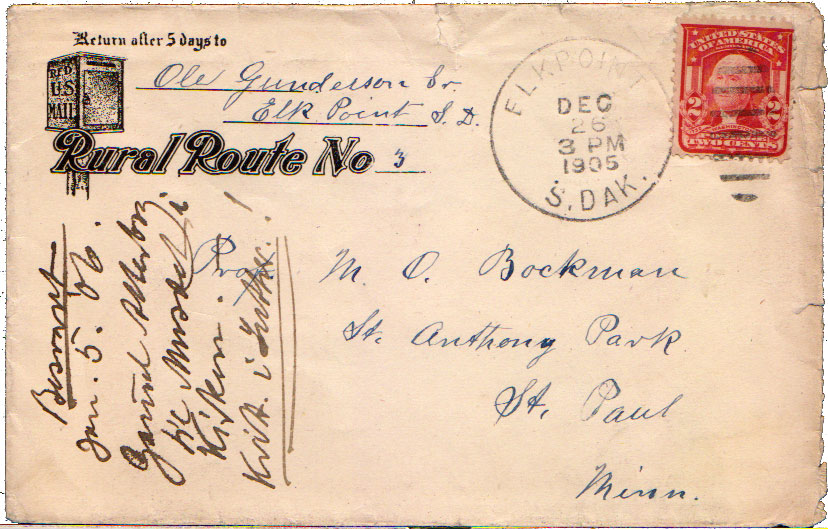 Return after 5 days to
RFD
U.S.
MAIL
Ole Gunderson Sr.
Elk Point S. D.
Rural Route No 3
ELKPOINT
DEC
26
3 PM
1905
S. DAK.
UNITED STATES
OF AMERICA
2 2
TWO CENTS
Prof. M. O. Bockman
St. Anthony Park
St. Paul
Minn.
Besvart
Jan. 5. 06.
Kirken.